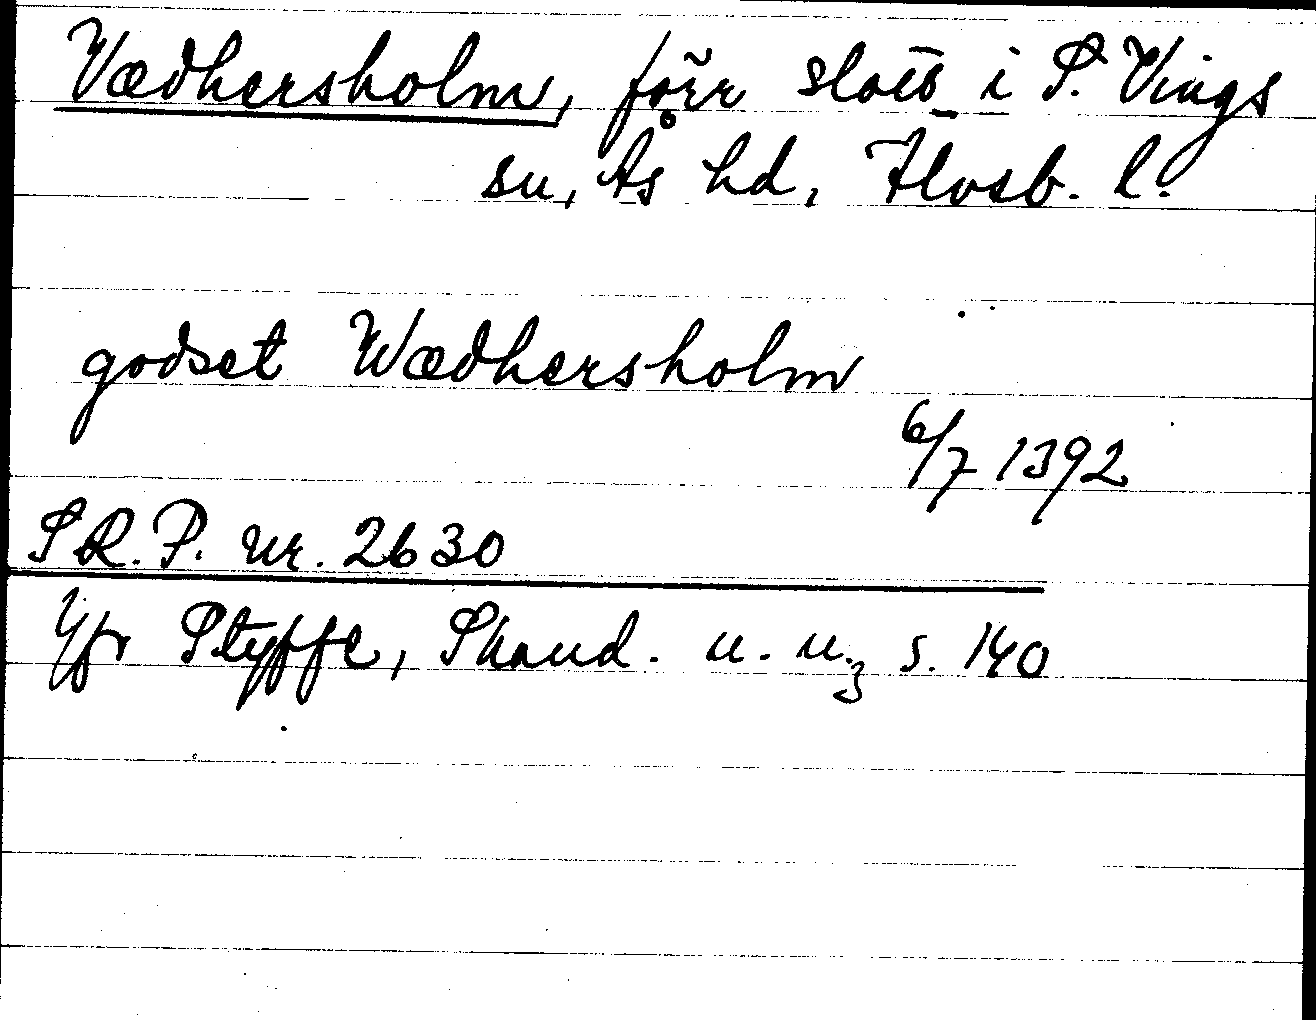 Vædhersholm, förr slott i S. Vings
sn, Ås hd, Älvsb. l.
godset Wædhersholm
6/7 1392
S R. P. nr. 2630
Jfr Styffe, Skand. u. u.3 s. 140